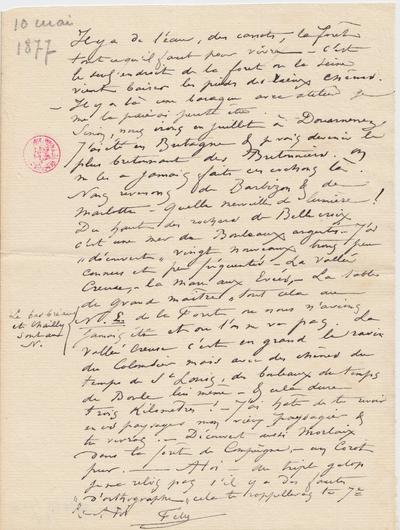 10 mai
1877
Il y a de l'eau, des canots, la forêt
tout ce qu'il faut pour vivre — c'est
le seul endroit de la forêt où la Seine
vient baiser les pieds des vieux chênes.
— Il y a là une baraque avec atelier
me la paierai peut-être
Sinon, nous irons en juillet à Douarnenez
J'ai été en Bretagne & je vais devenir le
plus bretonnant des Bretonniers. On
n'les a jamais faits ces cochons là.
Nous revenons de Barbizon & de
Marlotte — Quelle merveille de lumière!
Du haut des rochers de Bellecroix
c'est une mer de Bouleaux argentés — J'ai
"découvert" vingt nouveaux bois peu
connus et peu fréquentés — La Vallée
Creuse — la Mare aux Evées — La Table
du Grand maître, sont cela au
N. E. de la Foret où nous n'avions
jamais été et où l'on ne va pas. La
Vallée Creuse c'est en grand le ravin
du Colombier mais avec des chênes du
temps de St Louis, des bouleaux du temps
de Boule lui même — & cela dure
trois Kilomètres! — J'ai hâte de te revoir
en ce paysage mon vieux paysagier &
tu verras. — Découvert aussi Mortain
dans la forêt de Compiègne — un Corot
pur. — A toi — au triple galop
Je ne relis pas s'il y a des fautes
"d'orthographe, cela te rappellera la 7e
A toi
Fély
Le bas Bréau
et Chailly
sont au
N.